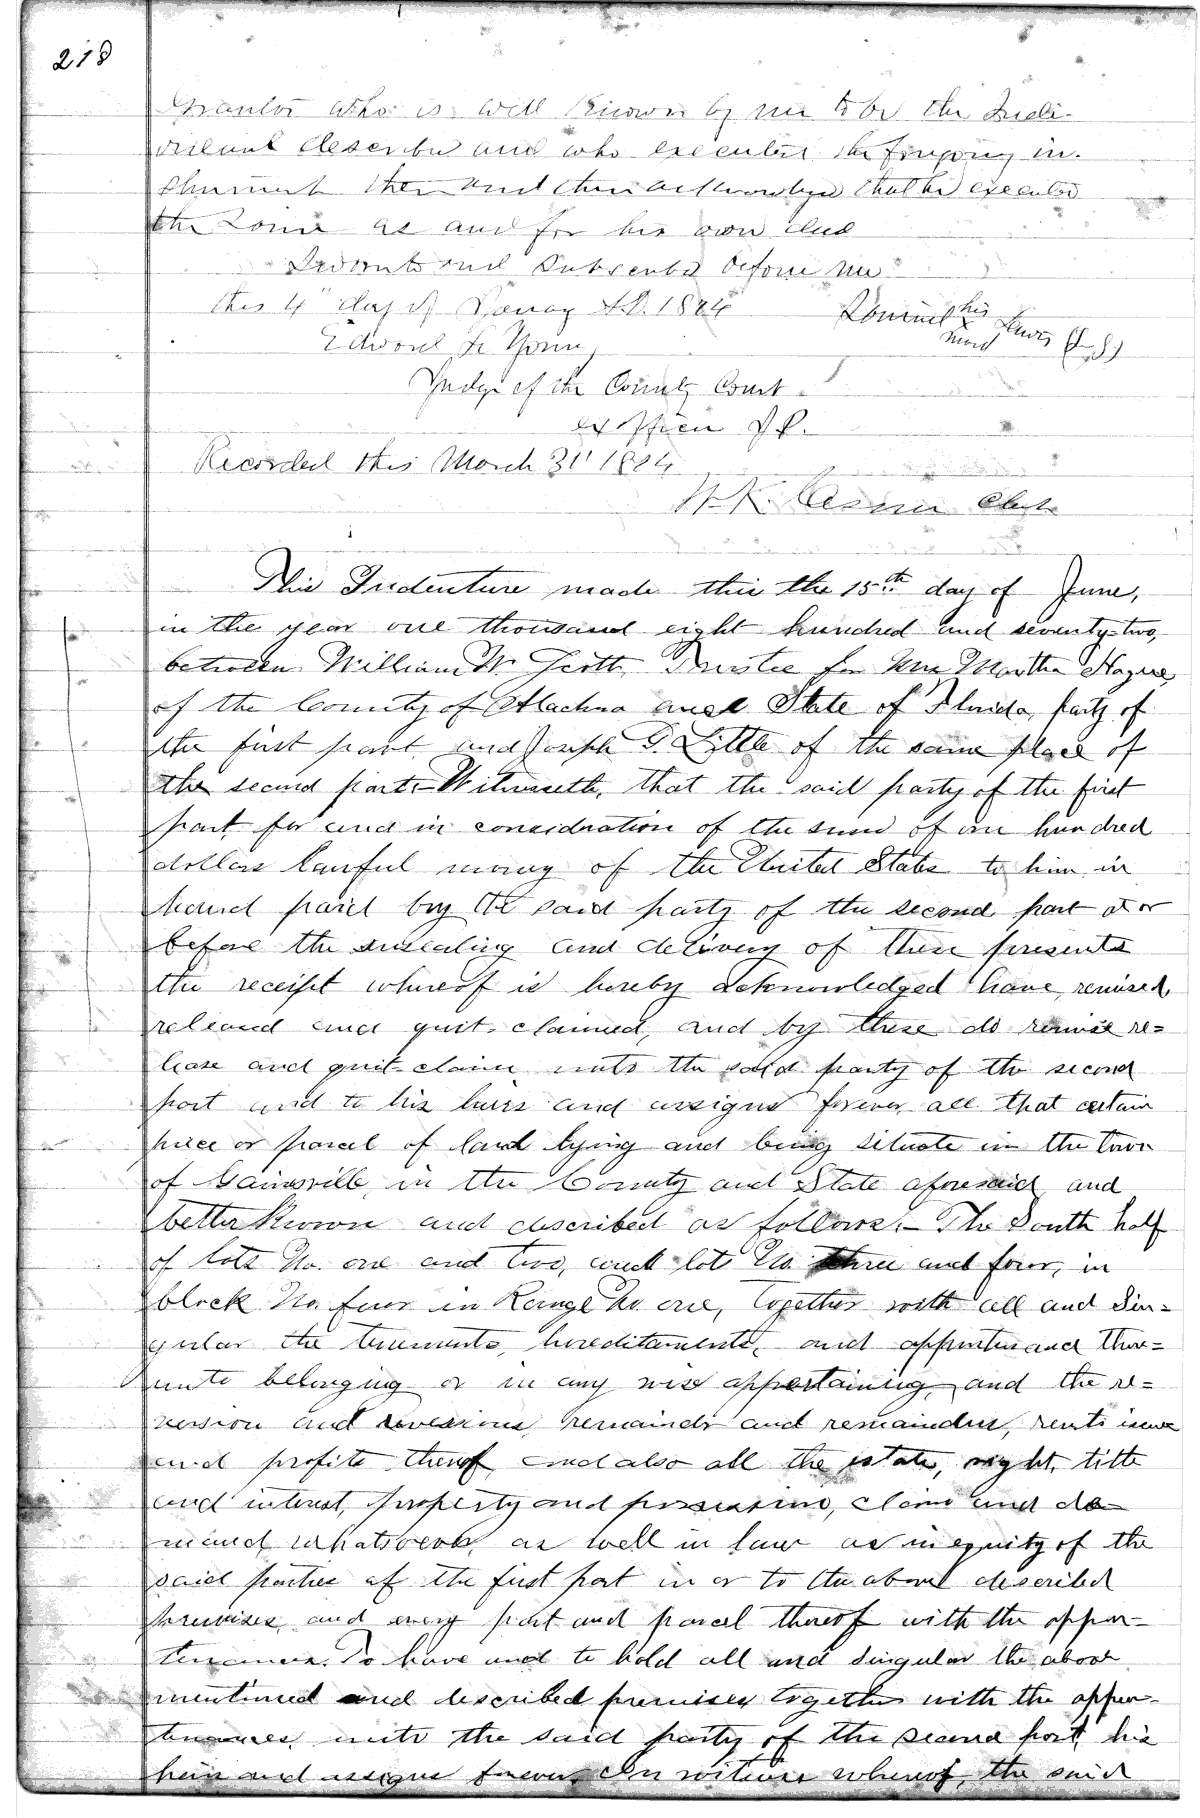 218
Grantor who is well known by me to be the Indi-
vidual described and who executed the forgoing in-
strument then and there acknowledged that he executed
the same as and for his own deed
Sworn to and Subscribed before me
this 4" day of A.D. 1884
his
Lewis (L.S)
x
mark
Edward
Judge of the County Court
ex officio J.P.
Recorded this March 31" 1884
Clerk
This Indenture made this the 15th day of June,
in the year one thousand eight hundred and seventy-two,
between William W. Scott, Trustee for Mrs Martha Hague,
of the County of Alachua and State of Florida, party of
the first part, and Joseph G. Little of the same place of
the second part:- Witnesseth, that the said party of the first
part for and in consideration of the sum of one hundred
dollars lawful money of the United States to him in
hand paid by the said party of the second part at or
before the ensealing and delivery of these presents
the receipt whereof is hereby acknowledged have, remised,
released and quit-claimed, and by these do remise re=
lease and quit-claim unto the said party of the second
part and to his heirs and assigns forever all that certain
piece or parcel of land lying and being situate in the town
of Gainesville, in the County and State aforesaid, and
better known and described as follows:- The South half
of lots No. one and two, and lots No. three and four, in
block No. four in Range No. one, Together with all and Sin=
gular the tenements, hereditaments, and appurtenances there=
unto belonging or in any wise appertaining, and the re=
version and reversions, remainder and remainders, rents issues
and profits thereof, and also all the estate, right, title
and interest, property and possession, claim and de-
mand whatsoever, as well in law as in equity of the
said parties of the first part in or to the above described
premises, and every part and parcel thereof with the appur-
tenances. To have and to hold all and singular the above
mentioned and described premises together with the appur-
tenances, unto the said party of the second part, his
heirs and assigns forever. In witness whereof, the said